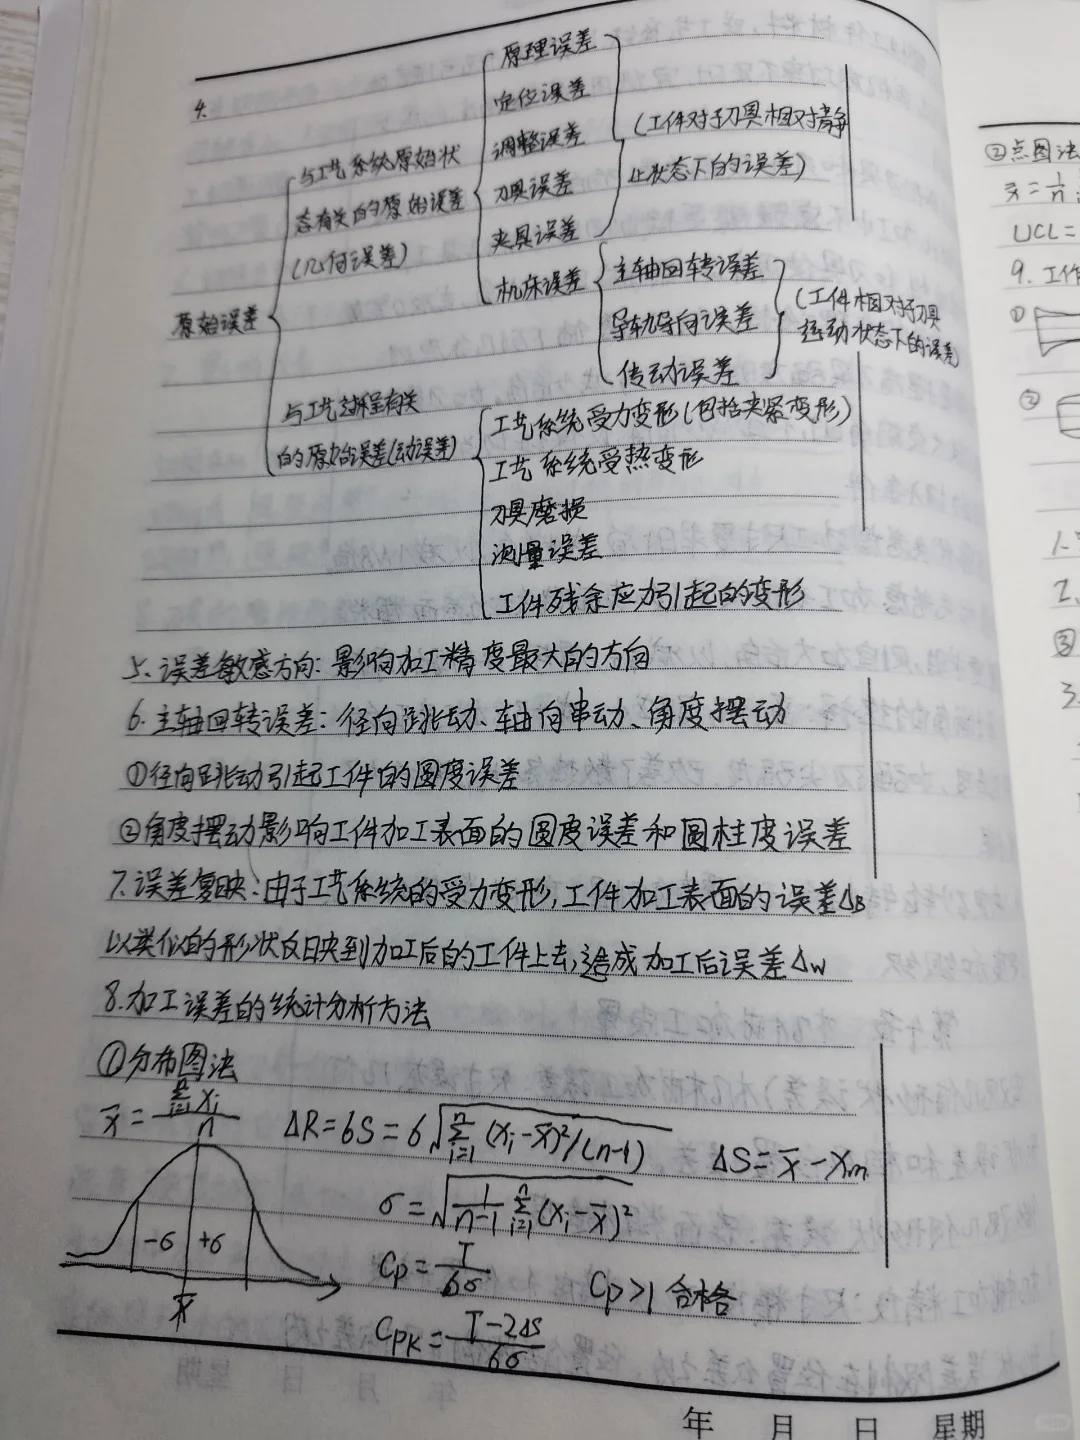 4.
原始误差
与工艺系统原始状
态有关的原始误差
(几何误差)
原理误差
定位误差
调整误差
刀具误差
夹具误差
机床误差
(工件对于刀具相对静
止状态下的误差)
主轴回转误差
导轨导向误差
传动误差
(工件相对于刀具
运动状态下的误差)
与工艺过程有关
的原始误差(动误差)
工艺系统受力变形(包括夹紧变形)
工艺系统受热变形
刀具磨损
测量误差
工件残余应力引起的变形
5. 误差敏感方向: 影响加工精度最大的方向
6. 主轴回转误差: 径向跳动、轴向串动、角度摆动
①径向跳动引起工件的圆度误差
②角度摆动影响工件加工表面的圆度误差和圆柱度误差
7. 误差复映: 由于工艺系统的受力变形, 工件加工表面的误差ΔB
以类似的形状反映到加工后的工件上去, 造成加工后误差Δw
8. 加工误差的统计分析方法
①分布图法
x̄ = Σ(i=1→n) xi / n
ΔR = 6S = 6√(Σ(i=1→n) (xi-x̄)²/(n-1))
ΔS = x̄ - xm
σ = √(1/(n-1) Σ(i=1→n) (xi-x̄)²)
-σ +σ
x̄
Cp = T/6σ
Cp>1 合格
CpK = (T-2ΔS)/6σ
年 月 日 星期
②点图法
UCL=
9. 工作
①
②
1.
2.
③
3.